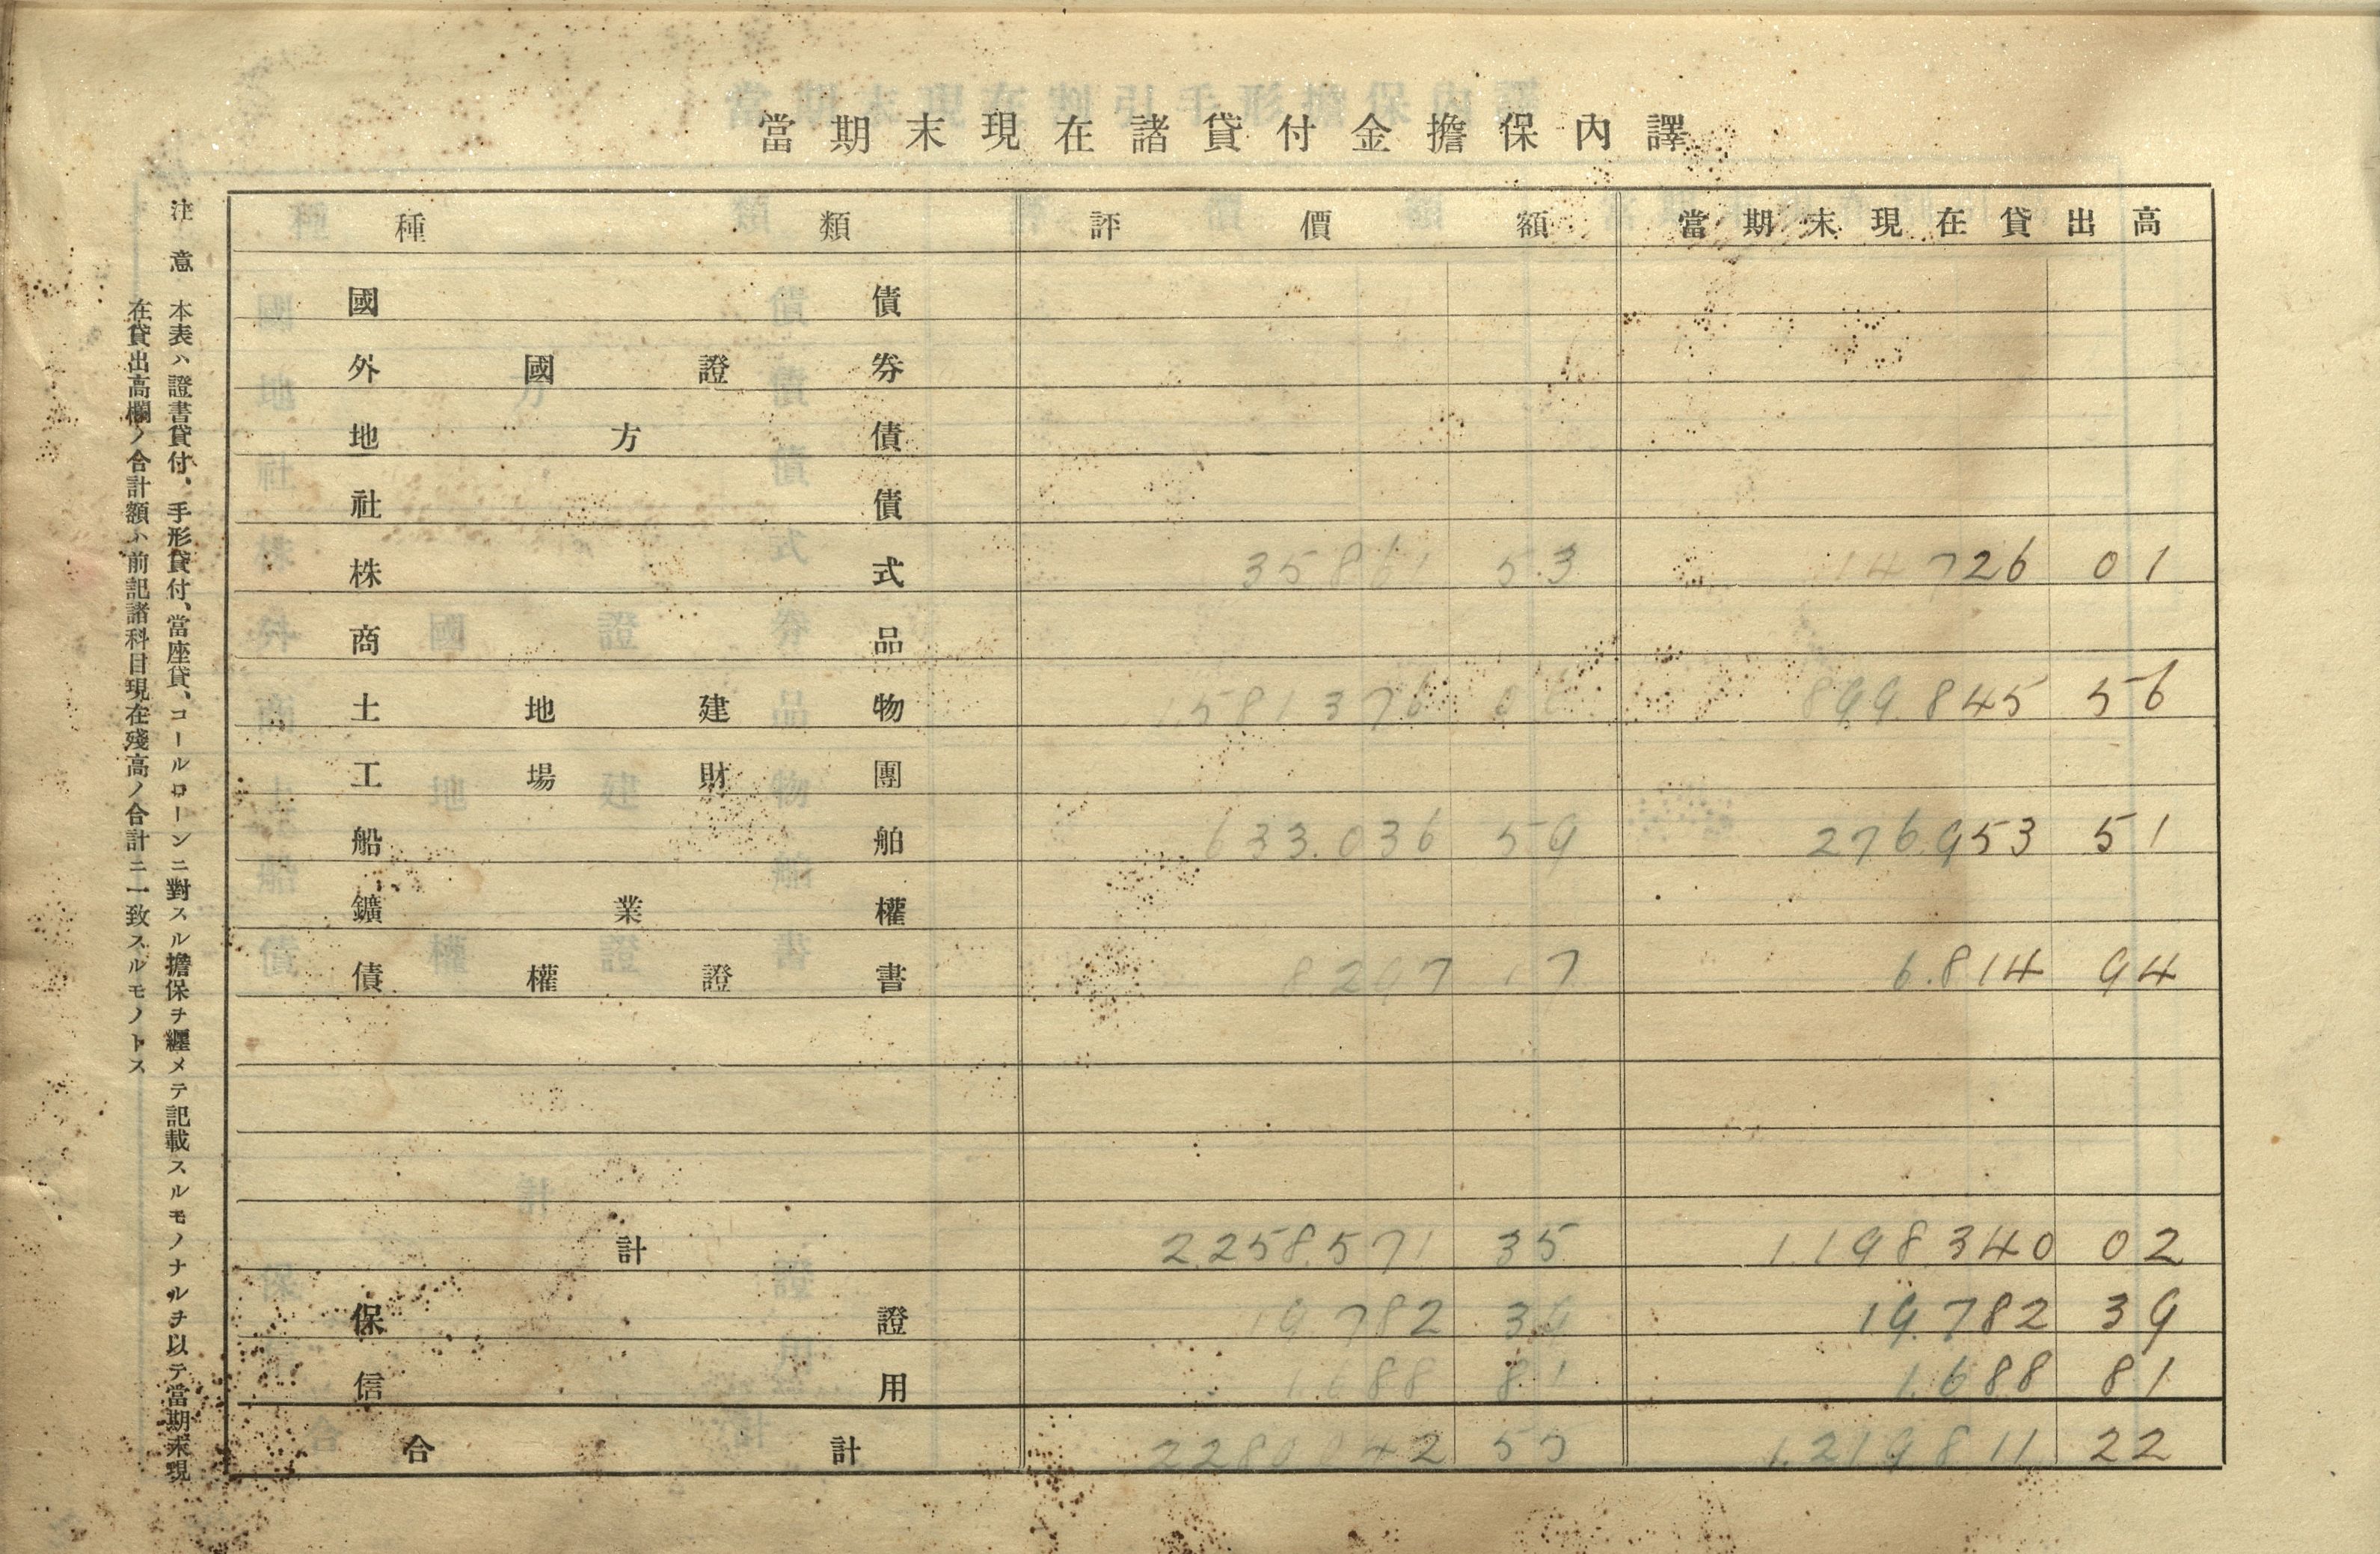 當期末現在諸貸付金擔保內譯
種類 評價額 當期末現在貸出高
國債
外國證券
地方債
社債
株式 35861 53 14726 01
商品
土地建物 1.581376 06 899.845 56
工場財團
船舶 633.036 59 276.953 51
鑛業權
債權證書 8.297 17 6.814 94
計 2.258.571 35 1.198.340 02
保證 19.782 39 19.782 39
信用 1.688 81 1.688 81
合計 2.280.042 55 1.219.811 22
注意 本表ハ證書貸付、手形貸付、當座貸、コールローンニ對スル擔保ヲ纒メテ記載スルモノナルヲ以テ當期末現
在貸出高欄ノ合計額ト前記諸科目現在殘高ノ合計ニ一致スルモノトス